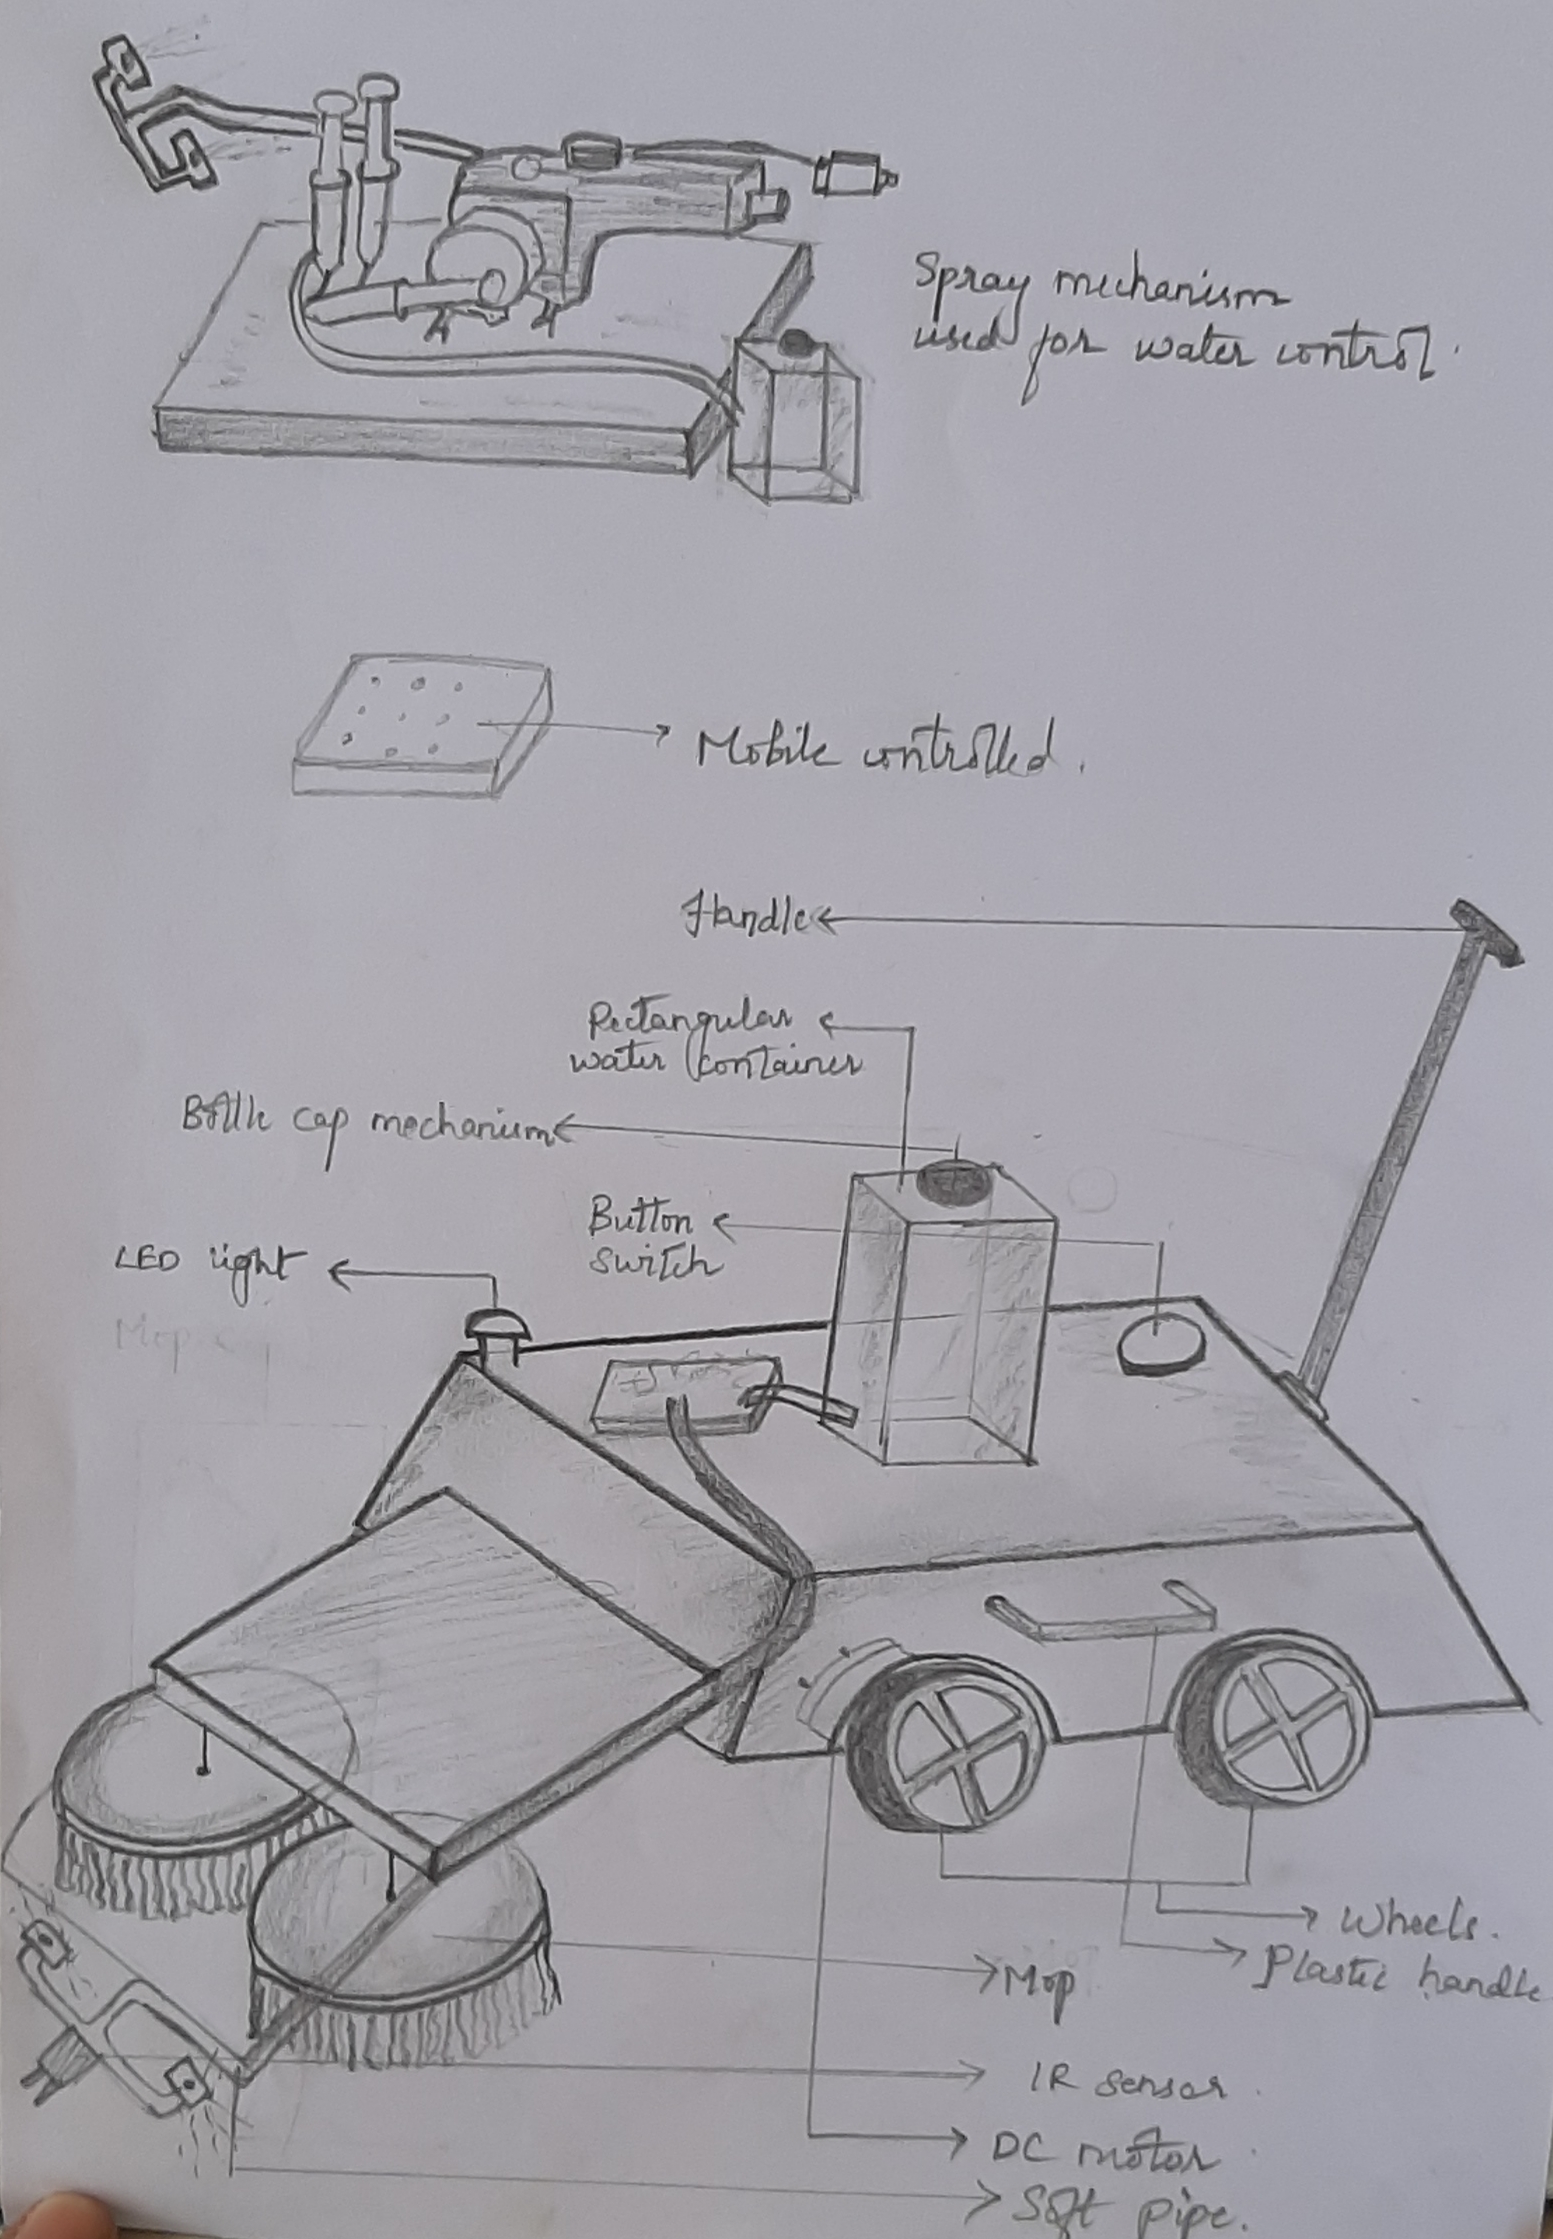 Spray mechanism
used for water control.
Mobile controlled.
Handle
Rectangular
water container
Bottle cap mechanism
Button
switch
LED light
Mop
Wheels.
Plastic handle
Mop
IR sensor.
DC motor.
Soft pipe.